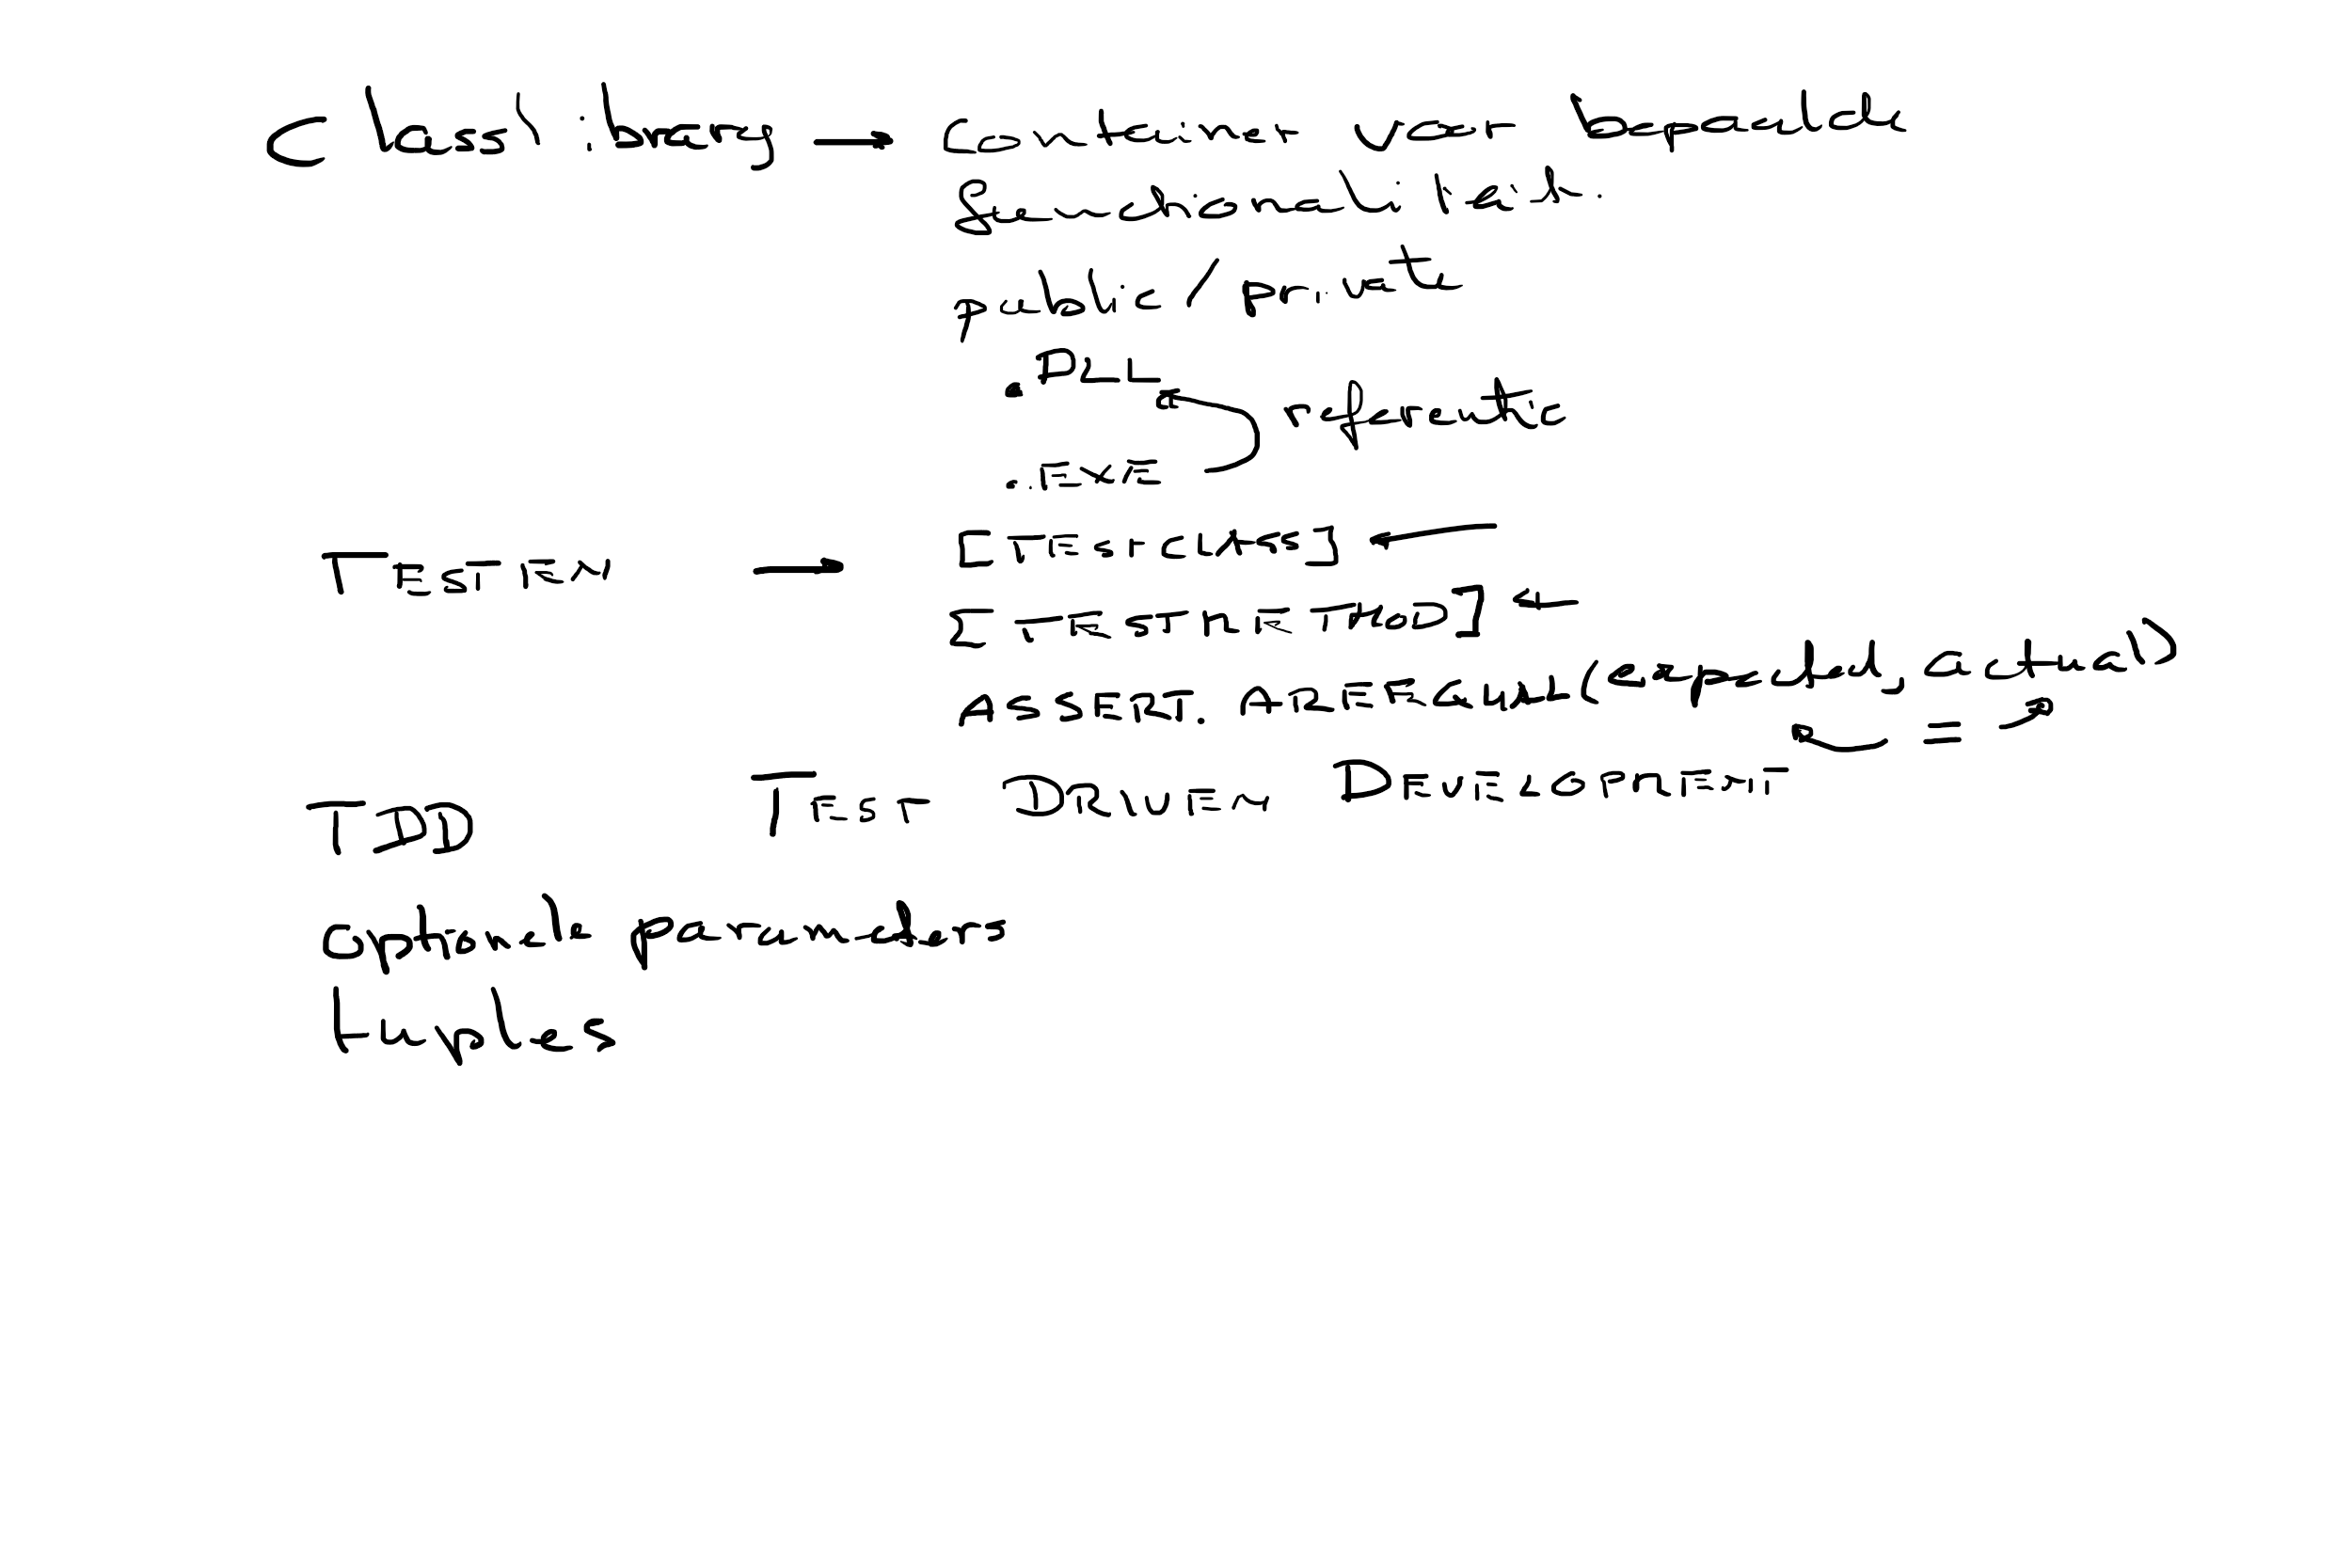 Class library → Container voor bepaalde
functionaliteit.
public/private
.DLL
referentie
.EXE
TESTEN → [TESTCLASS] ←
[TESTMETHOD] ←
ASSERT.AREEQUAL(expected, actual)
=
TDD TEST DRIVEN DEVELOPMENT
optionele parameters
tuples